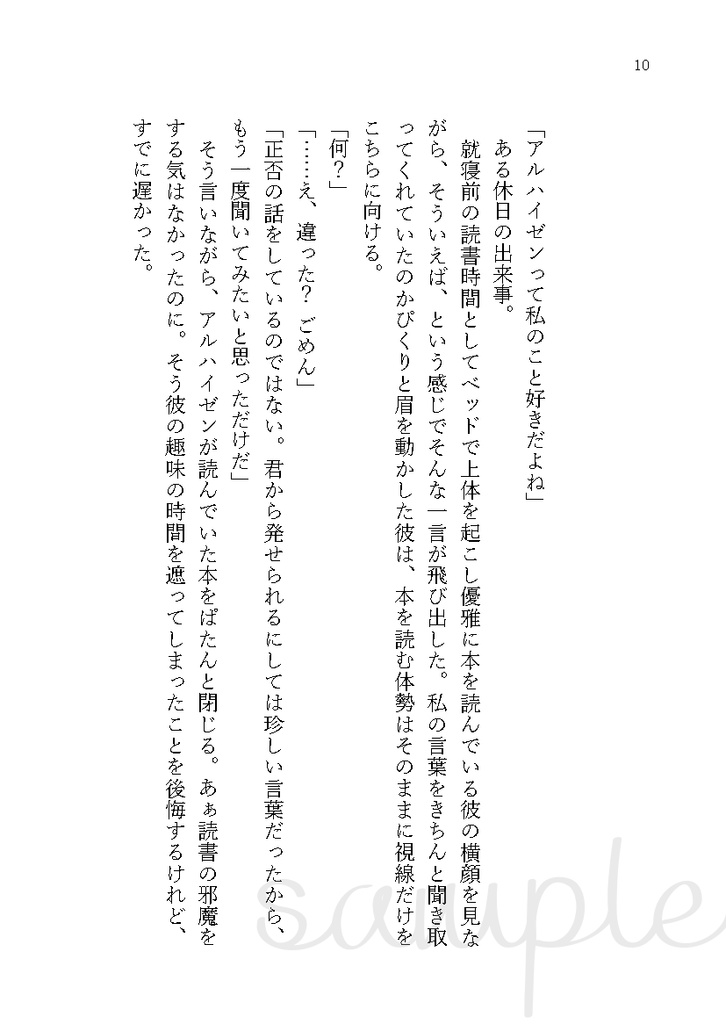 10
「アルハイゼンって私のこと好きだよね」
ある休日の出来事。
就寝前の読書時間としてベッドで上体を起こし優雅に本を読んでいる彼の横顔を見な
がら、そういえば、という感じでそんな一言が飛び出した。私の言葉をきちんと聞き取
ってくれていたのかぴくりと眉を動かした彼は、本を読む体勢はそのままに視線だけを
こちらに向ける。
「何？」
「……え、違った？ ごめん」
「正否の話をしているのではない。君から発せられるにしては珍しい言葉だったから、
もう一度聞いてみたいと思っただけだ」
そう言いながら、アルハイゼンが読んでいた本をぱたんと閉じる。あぁ読書の邪魔を
する気はなかったのに。そう彼の趣味の時間を遮ってしまったことを後悔するけれど、
すでに遅かった。
sample